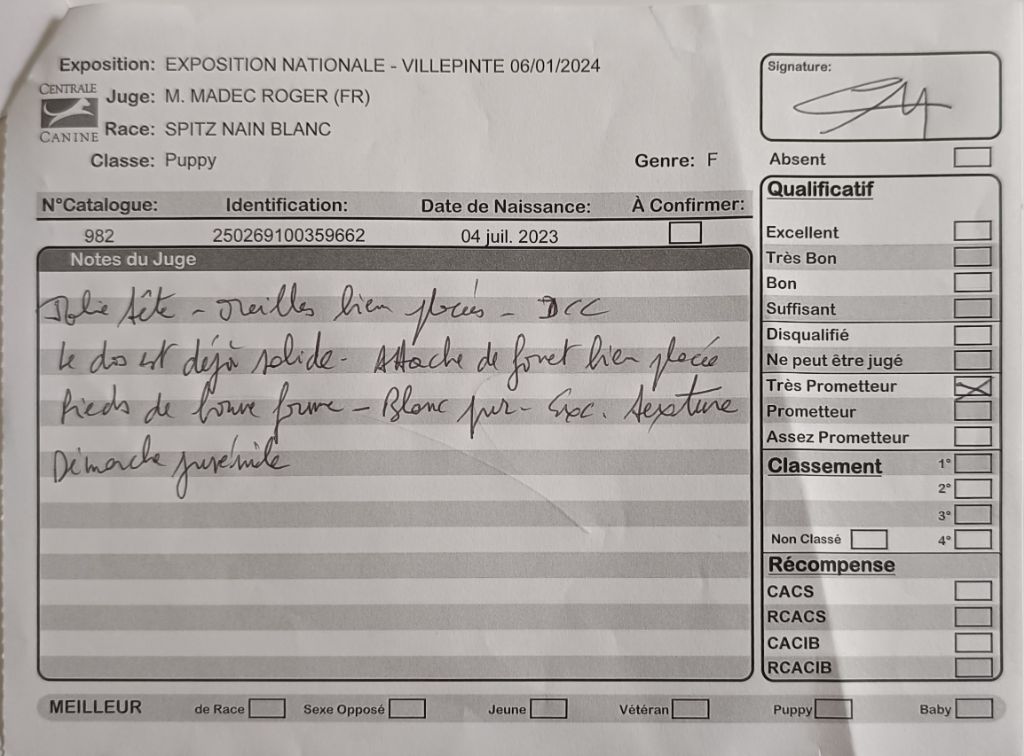 Exposition: EXPOSITION NATIONALE - VILLEPINTE 06/01/2024
CENTRALE CANINE
Juge: M. MADEC ROGER (FR)
Race: SPITZ NAIN BLANC
Classe: Puppy Genre: F
Signature:
Absent
N°Catalogue: Identification: Date de Naissance: À Confirmer:
982 250269100359662 04 juil. 2023
Notes du Juge
Jolie tête - oreilles bien placées - DCC
Le dos est déjà solide - Attache de fouet bien placée
Pieds de bonne forme - Blanc pur - Exc. texture
Démarche juvénile
Qualificatif
Excellent
Très Bon
Bon
Suffisant
Disqualifié
Ne peut être jugé
Très Prometteur
Prometteur
Assez Prometteur
Classement 1°
2°
3°
Non Classé 4°
Récompense
CACS
RCACS
CACIB
RCACIB
MEILLEUR de Race Sexe Opposé Jeune Vétéran Puppy Baby